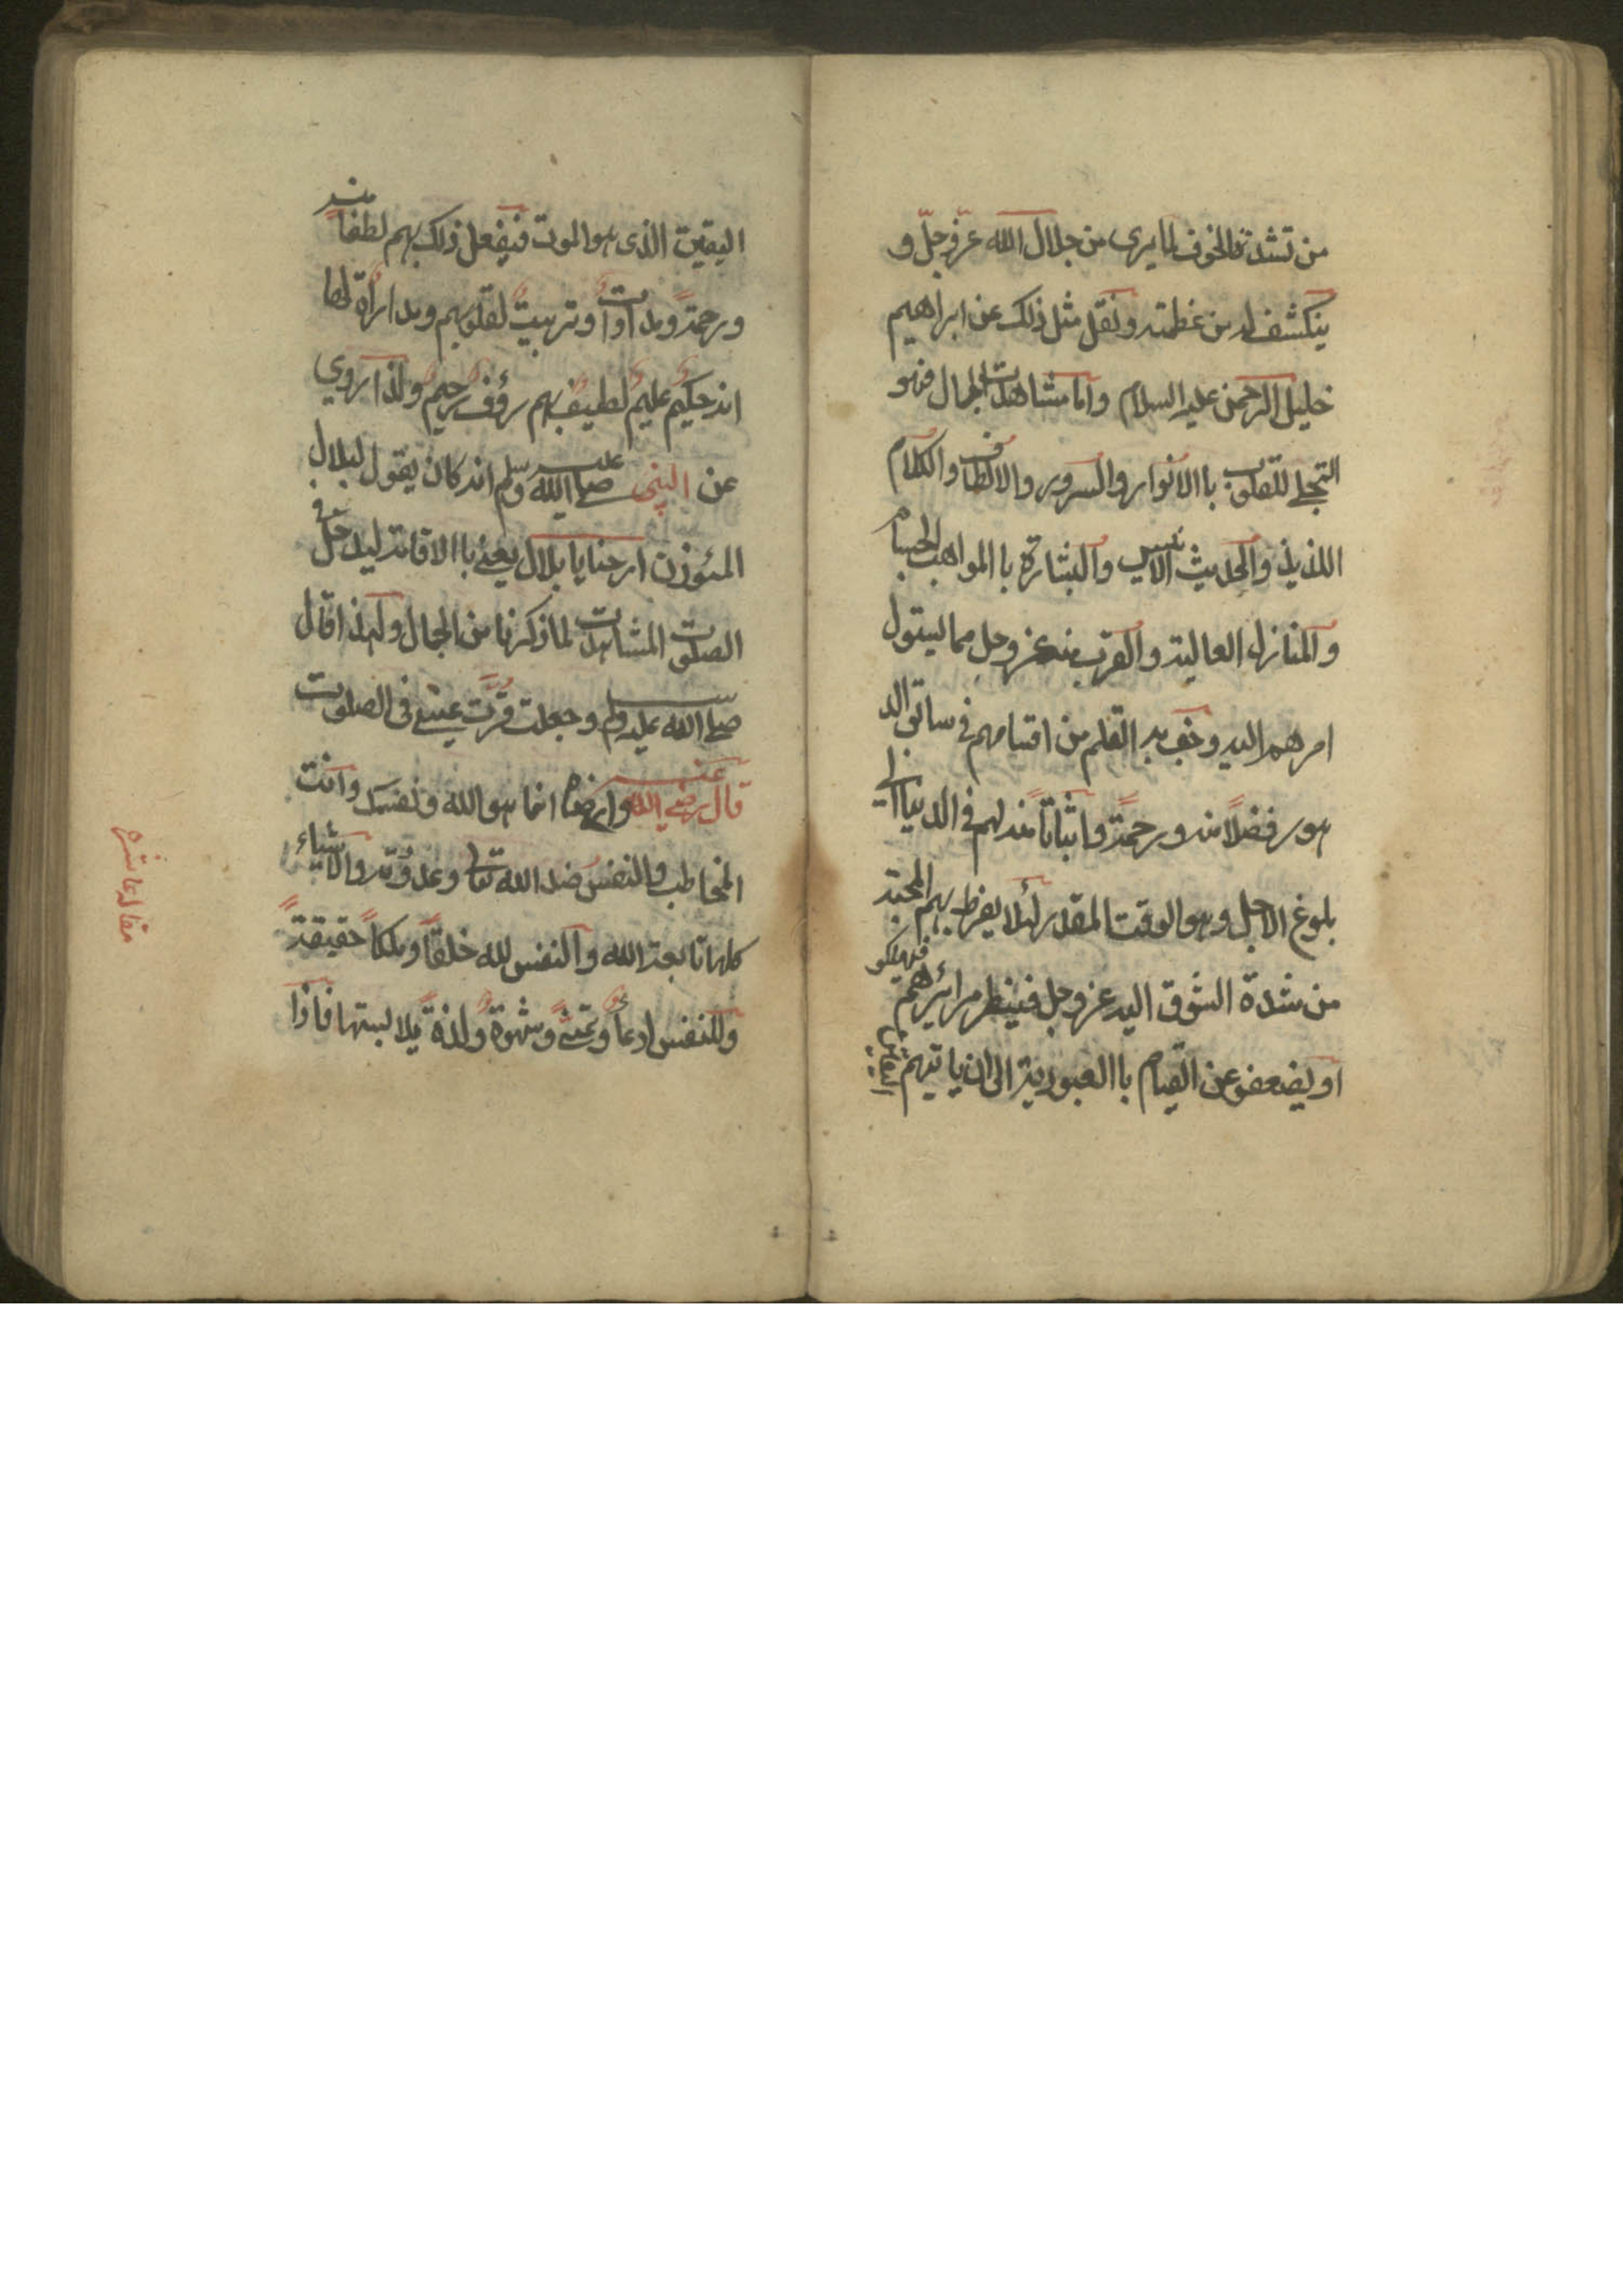 من تشدة الخوف لما يرى من جلال الله عزّ وجلّ و
ينكشف له من عظمته ونقل مثل ذلك عن ابراهيم
خليل الرحمن عليه السلام واما مشاهدت الجمال فهو
التجلے للقلوب باالانوار والسرور والالطاف والكلام
اللذيذ والحديث الانيس والبشارة باالمواهب الحسام
والمنازل العالية والقرب منه عز وجل مما سيئول
امرهم اليه وخف به القلم من اقسامهم فى سابق الد
هور فضلاً منه ورحمةً واثباتاً منه لهم فى الدنيا الى
بلوغ الاجل وهو الوقت المقدر لئلا يفرط بهم المحبة
من شدة الشوق اليه عز وجل فينفطر مرائرهم فيهلكو
او يضعفو عن القيام باالعبودية الى ان ياتيهم
اليقين الذى هو الموت فيفعل ذلك بهم لطفاً منه
ورحمةً ومداواتً وتربيتً لقلوبهم ومداراةً لها
انه حكيمٌ عليمٌ لطيفٌ بهم رؤفٌ رحيمٌ ولذا روي
عن النبى صلے الله عليه وسلم انه كان يقول لبلال
المئوذن ارحنا يا بلال يعنے باالاقامة ليدخل فى
الصلوت المشاهدت لما ذكرنا من الجمال ولهذا قال
صلے الله عليه وسلم وجعلت قرّت عينے فى الصلوت
قال رضے الله عنه وارضاه انما هو الله ونفسك وانت
المخاطب والنفس ضد الله تعالى وعدوّته والاشياء
كلها تابعة الله والنفس لله خلقاً وملكاً حقيقةً
وللنفس ادعاً وتمنے وشهوةً ولذةً بملابستها فاذا